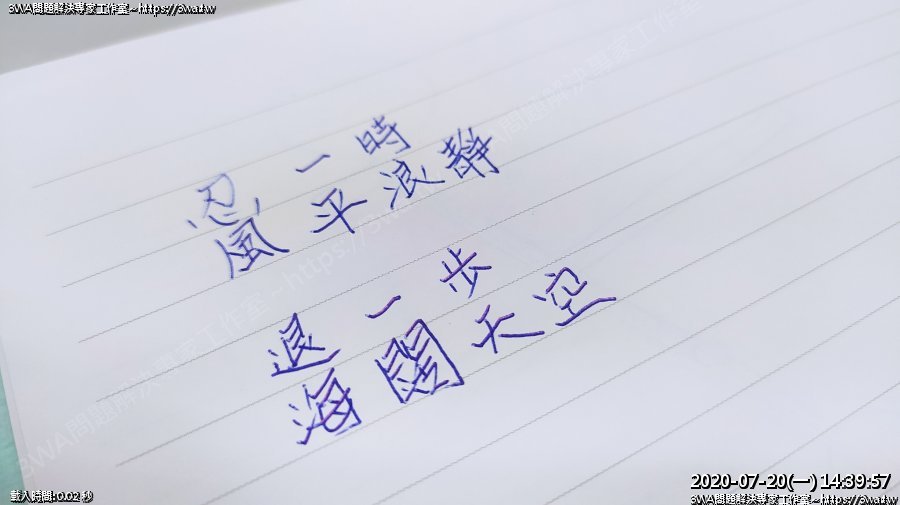 3WA問題解決專家工作室~https://3wa.tw
忍一時
風平浪靜
退一步
海闊天空
3WA問題解決專家工作室~https://3wa.tw
載入時間:0.02 秒
2020-07-20(一) 14:39:57
3WA問題解決專家工作室~https://3wa.tw